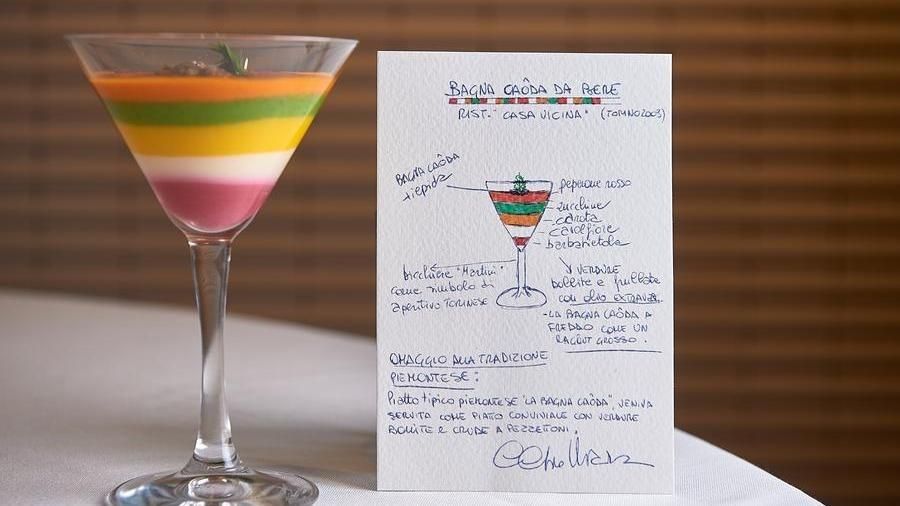 BAGNA CAÔDA DA BERE
RIST. "CASA VICINA" (TORINO2003)
BAGNA CAÔDA
tiepida
peperone rosso
zucchine
carota
cavolfiore
barbabietola
bicchiere "Martini"
come simbolo di
aperitivo TORINESE
VERDURE
bollite e frullate
con olio EXTRAVER.
-LA BAGNA CAÔDA A
FREDDO COME UN
RAGÔUT GROSSO.
OMAGGIO ALLA TRADIZIONE
PIEMONTESE:
Piatto tipico piemontese "LA BAGNA CAÔDA", VENIVA
SERVITA COME PIATTO CONVIVIALE CON VERDURE
BOLLITE E CRUDE A PEZZETTONI.